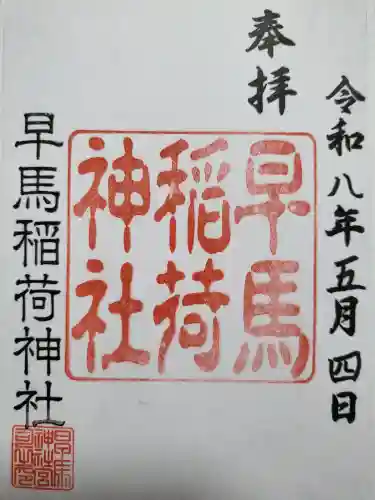 令和八年五月四日
奉拝
早馬
稲荷
神社
早馬稲荷神社